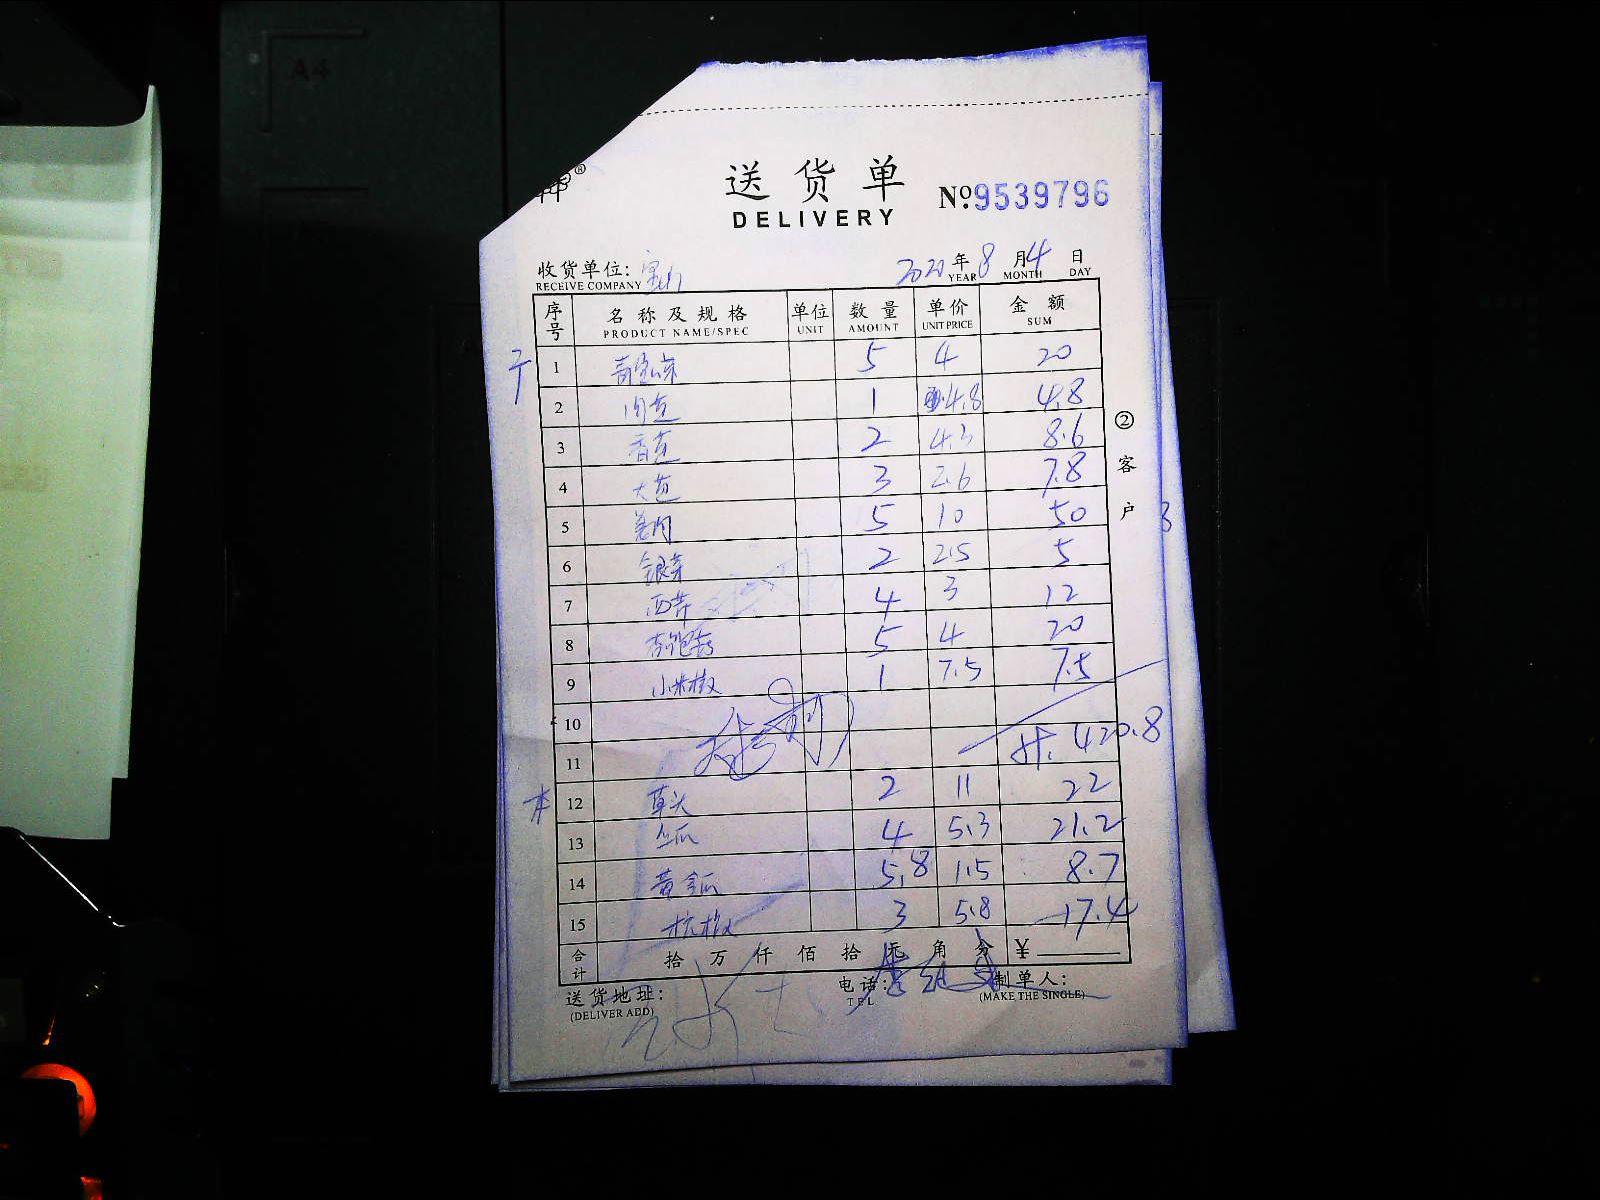 A4
®
送货单
DELIVERY
№:9539796
收货单位:宝山 2020年8月4日
RECEIVE COMPANY YEAR MONTH DAY
序号 名称及规格 单位 数量 单价 金额
PRODUCT NAME/SPEC UNIT AMOUNT UNIT PRICE SUM
1 5 4 20
2 肉 1 4.8 4.8
3 香芹 2 4.3 8.6
4 大 3 2.6 7.8
5 姜肉 5 10 50
6 银芽 2 2.5 5
7 西芹 4 3 12
8 杏鲍菇 5 4 20
9 小米椒 1 7.5 7.5
10
11 计. 420.8
12 草头 2 11 22
13 丝瓜 4 5.3 21.2
14 黄金瓜 5.8 1.5 8.7
15 杭椒 3 5.8 17.4
合计 拾万仟佰拾元角分 ¥
送货地址: 电话: 制单人:
(DELIVER ADD) TEL (MAKE THE SINGLE)
②客户